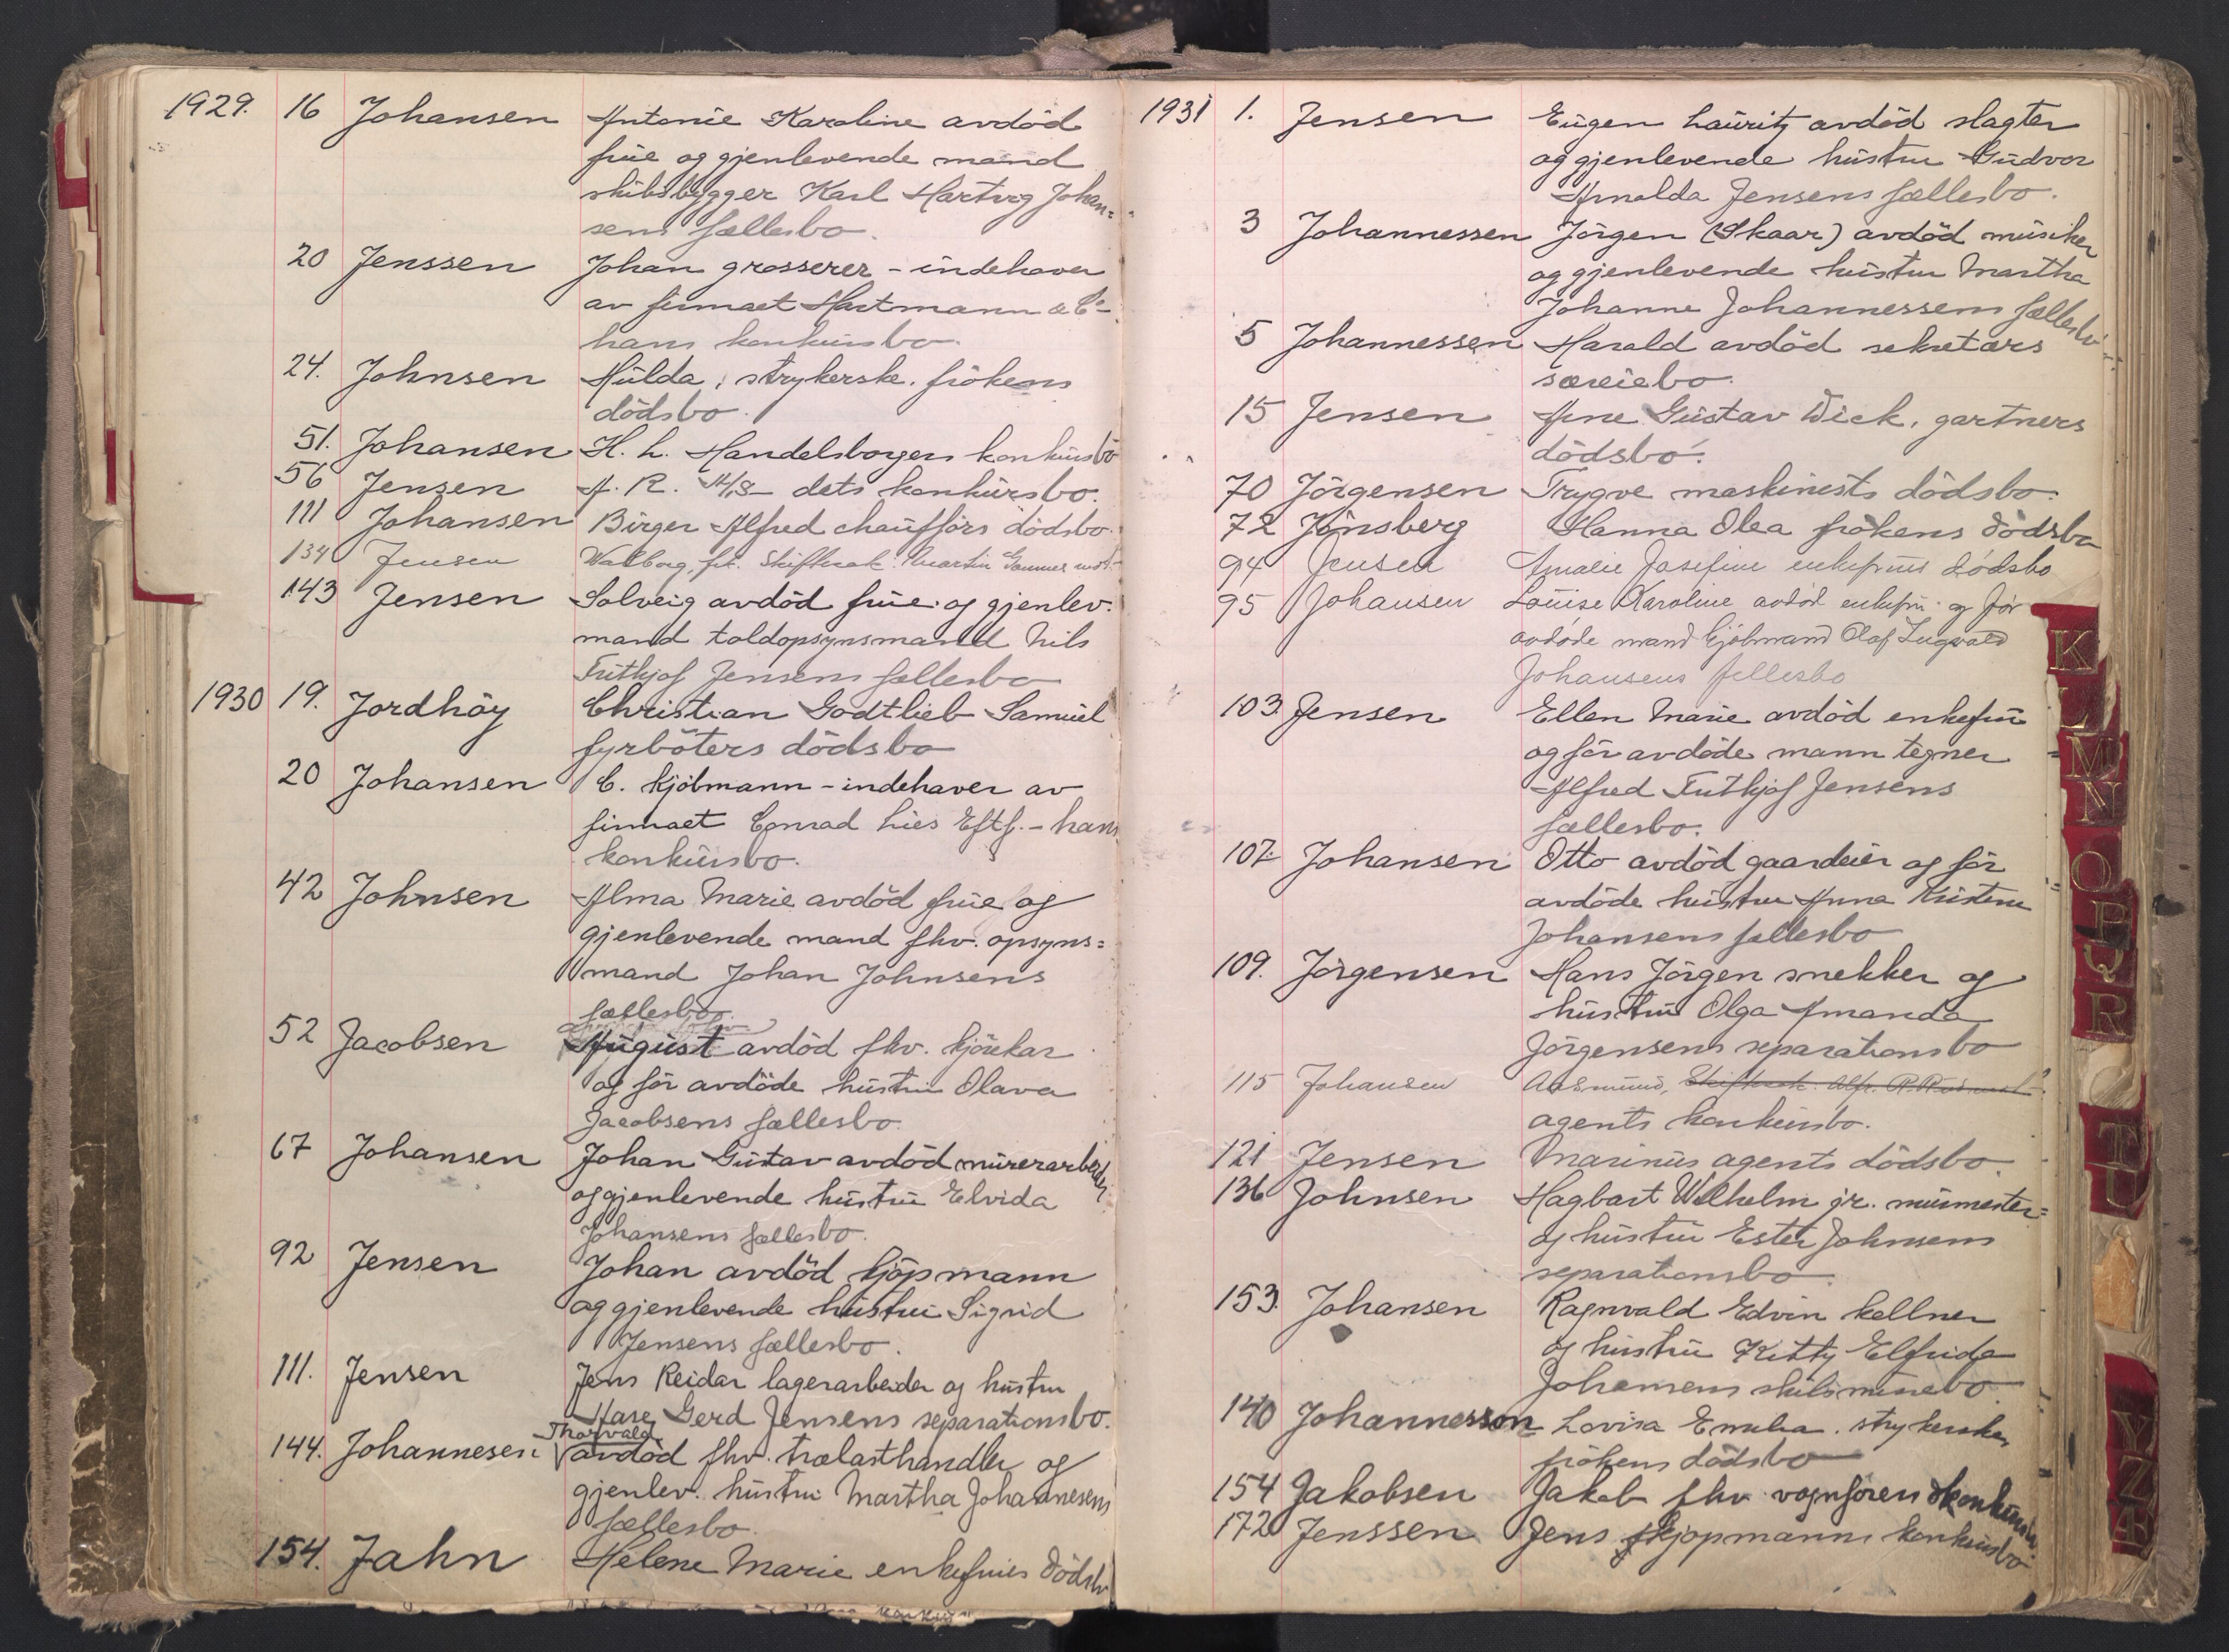 1929. 16 Johansen Antonie Karoline avdöd
frue og gjenlevende mand
skibsbygger Karl Hartvig Johan=
sens fællesbo.
20 Jenssen Johan grosserer - indehaver
av firmaet Hartmann & Co -
hans konkursbo.
24. Johnsen Hulda, strykerske. frökens
dödsbo.
51. Johansen H. L. Handelsborgers konkursbo
56 Jensen A. R. A/S - dets konkursbo.
111 Johansen Birger Alfred chaufförs dödsbo.
134 Jensen Walborg, frk. Skiftesak. Martin
143 Jensen Solveig avdöd frue og gjenlev.
mand toldopsynsmand Nils
Fritkjof Jensens fællesbo
1930 19. Jordhöy Christian Godtlieb Samuel
fyrböters dödsbo
20 Johansen C. Kjöbmann - indehaver av
firmaet Conrad Lies Eftf. - hans
konkursbo.
42 Johnsen Alma Marie avdöd frue og
gjenlevende mand fhv. opsyns=
mand Johan Johnsens
fællesbo.
52 Jacobsen August avdöd fhv. kjörekar
og för avdöde hustru Olava
Jacobsens fællesbo.
67 Johansen Johan Gustav avdöd mürerarbeider
og gjenlevende hustru Elvida
Johansens fællesbo.
92 Jensen Johan avdöd kjöpmann
og gjenlevende hustru Sigrid
Jensens fællesbo.
111. Jensen Jens Reidar lagerarbeider og hustru
Gerd Jensens separationsbo.
144. Johannesen Thorvald avdöd fhv. trælasthandler og
gjenlev. hustru Martha Johannesens
fællesbo.
154. Jahn Helene Marie enkefrues dödsbo
1931 1. Jensen Eugen Lauritz avdöd slagter
og gjenlevende hustru Gudvor
Arnolda Jensens fællesbo.
3 Johannessen Jörgen (Skaar) avdöd musiker
og gjenlevende hustru Martha
Johanne Johannessens fællesbo
5 Johannessen Harald avdöd sekretærs
særeiebo.
15 Jensen Arne Gustav Wick, gartners
dödsbo.
70 Jörgensen Trygve maskinists dödsbo.
72 Jönsberg Hanna Olea frökens dödsbo
94 Jensen Amalie Josefine enkefrues dödsbo
95 Johansen Louise Karoline avdöd enkefru og för
avdöde mand kjöbmand Olaf Ingvald
Johansens fellesbo
103. Jensen Ellen Marie avdöd enkefru
og för avdöde mann tegner
Alfred Fritkjof Jensens
fællesbo.
107. Johansen Otto avdöd gaardeier og för
avdöde hustru Anna Kristine
Johansens fællesbo
109. Jörgensen Hans Jörgen snekker og
hustru Olga Amanda
Jörgensens separationsbo
115 Johansen Aasmund, Skiftesak. Alfr.
agents konkursbo.
121 Jensen Marinus agents dödsbo.
136 Johnsen Hagbart Wilhelm jr. murmester=
og hustru Ester Johnsens
separationsbo.
153. Johansen Ragnvald Edvin kellner
og hustru Kitty Elfrida
Johansens skilsmissebo
140 Johannesson Lovisa Emilia. strykerske
frökens dödsbo
154 Jakobsen Jakob fhv vognförers konkursbo.
172 Jenssen Jens kjöpmanns konkursbo
K
L
M
N
O
P
Q
R
T
U
Y
Z
Æ